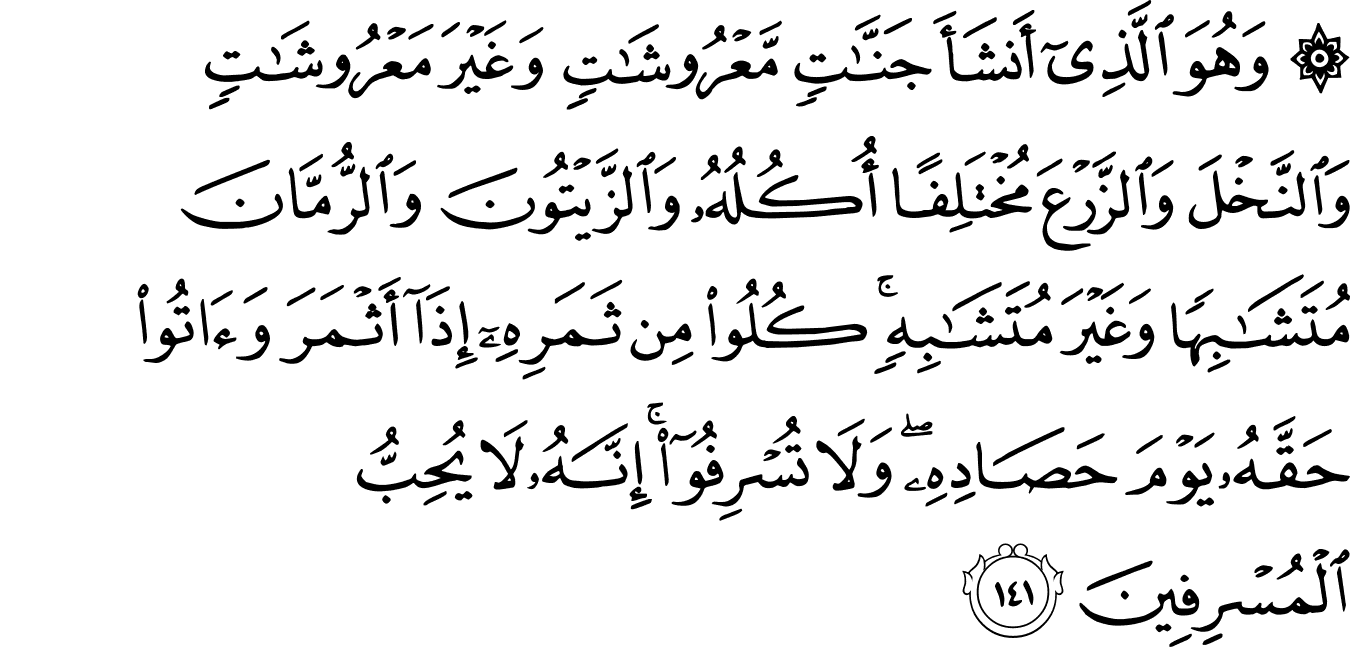 ۞ وَهُوَ ٱلَّذِىٓ أَنشَأَ جَنَّـٰتٍ مَّعْرُوشَـٰتٍ وَغَيْرَ مَعْرُوشَـٰتٍ
وَٱلنَّخْلَ وَٱلزَّرْعَ مُخْتَلِفًا أُكُلُهُۥ وَٱلزَّيْتُونَ وَٱلرُّمَّانَ
مُتَشَـٰبِهًا وَغَيْرَ مُتَشَـٰبِهٍ ۚ كُلُوا۟ مِن ثَمَرِهِۦٓ إِذَآ أَثْمَرَ وَءَاتُوا۟
حَقَّهُۥ يَوْمَ حَصَادِهِۦ ۖ وَلَا تُسْرِفُوٓا۟ ۚ إِنَّهُۥ لَا يُحِبُّ
ٱلْمُسْرِفِينَ ١٤١